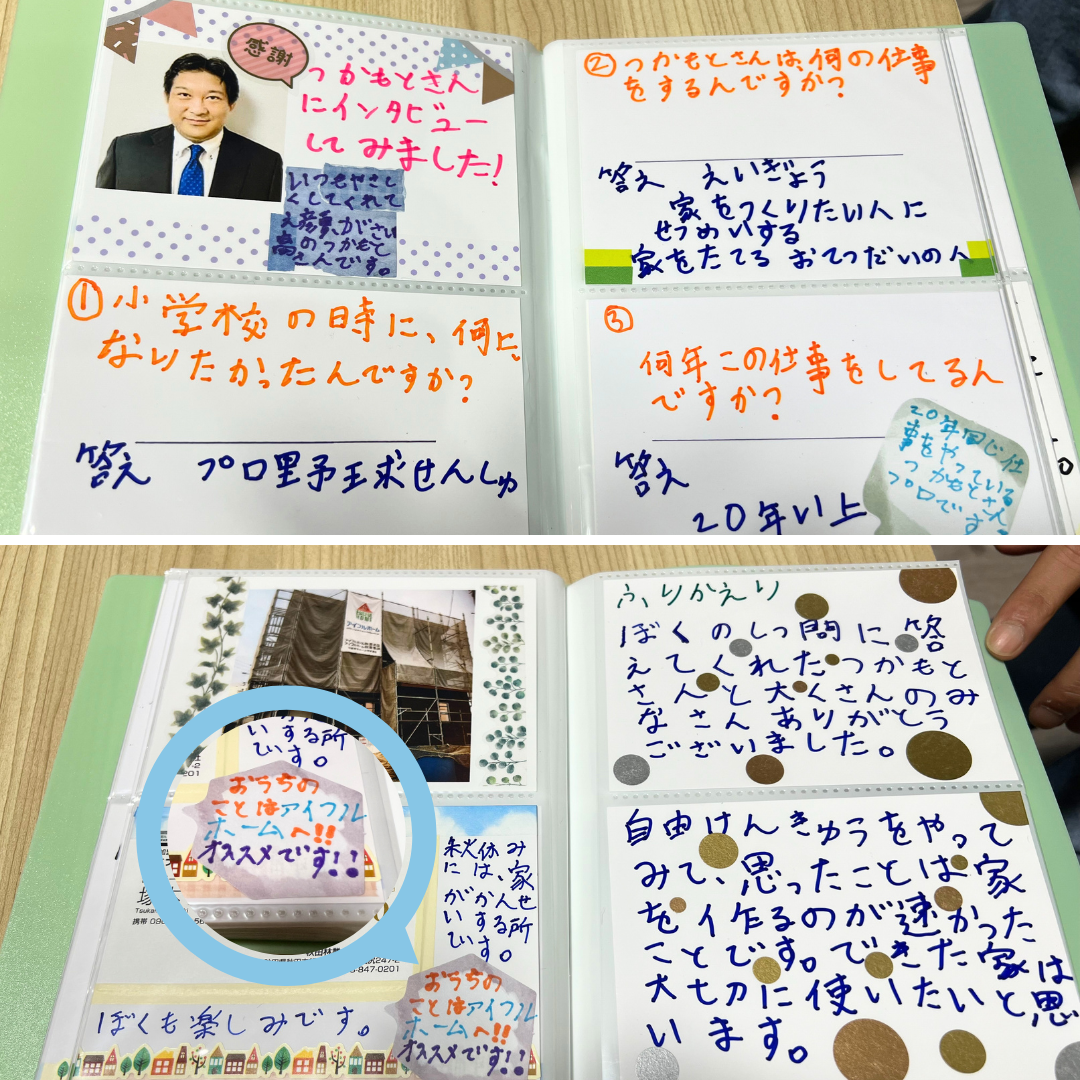 感謝
つかもとさん
にインタビュー
してみました!
いつもやさし
くしてくれて
え顔がさい
高のつかもと
さんです。
①小学校の時に、何に
なりたかったんですか?
答え プロ野球せんしゅ
②つかもとさんは、何の仕事
をするんですか?
答え えいぎょう
家をつくりたい人に
せつめいする
家をたてる おてつだいの人
③
何年この仕事をしてるん
ですか?
答え
20年い上
20年同じ仕
事をやっている
つかもとさん。
プロです。
アイフルホーム
いする所
ひす。
おうちの
ことはアイフル
ホームへ!!
オススメです!!
秋休み
には、家
がかんせ
いする所
ひす。
携帯 090
847-0201
ぼくも楽しみです。
おうちの
ことはアイフル
ホームへ!!
オススメです!!
ふりかえり
ぼくのしつ問に答
えてくれたつかもと
さんと大くさんのみ
なさんありがとう
ございました。
自由けんきゅうをやって
みて、思ったことは家
を作るのが速かった
ことです。できた家は
大切に使いたいと思
います。